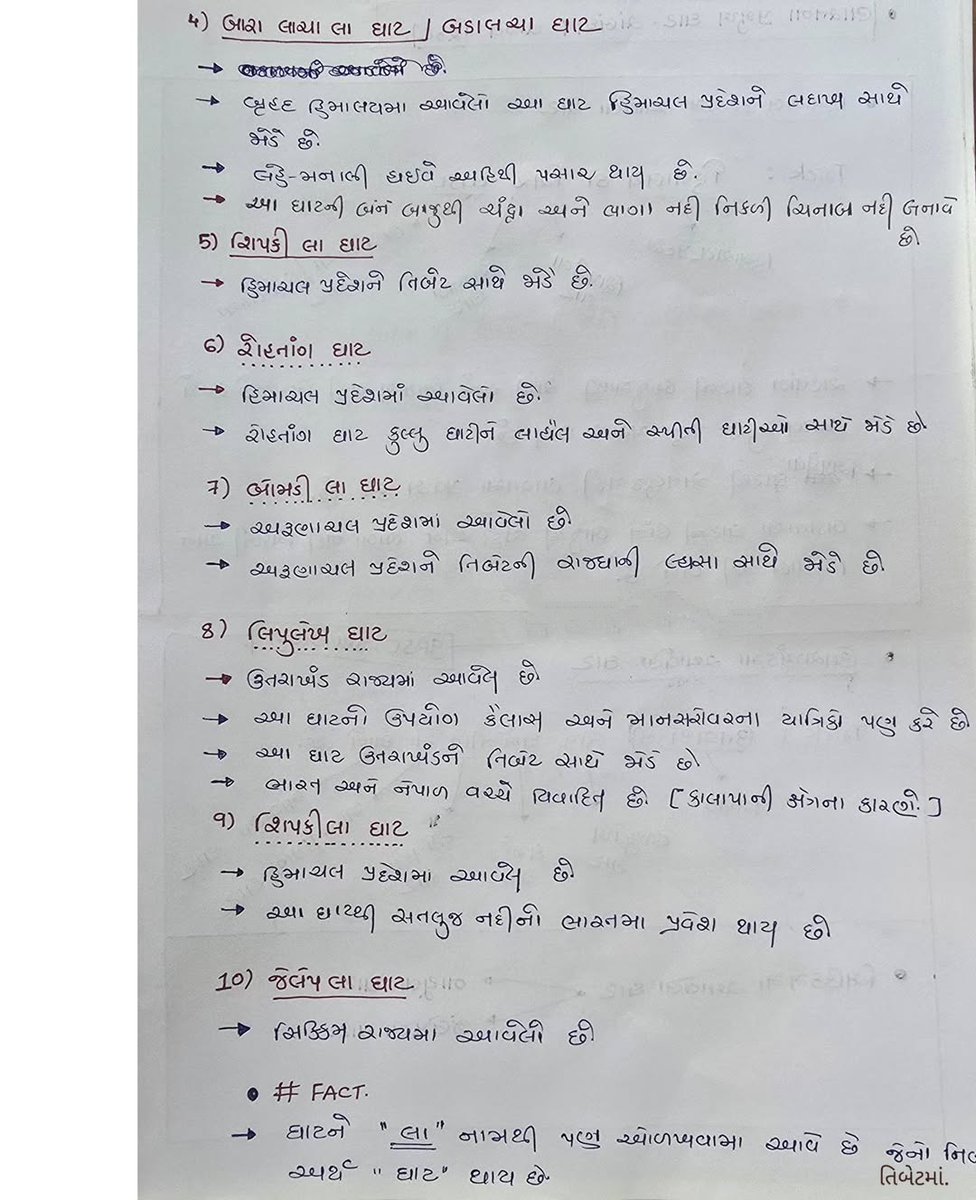 ૪) બારા લાચા લા ઘાટ / બડાલચા ઘાટ
→ છે.
→ બૃહદ હિમાલયમા આવેલો આ ઘાટ હિમાચલ પ્રદેશને લદાખ સાથે
જોડે છે.
→ લેહ-મનાલી હાઈવે અહિથી પસાર થાય છે.
→ આ ઘાટની બંને બાજુથી ચંદ્રા અને ભાગા નદી નિકળી ચિનાબ નદી બનાવે
છે
5) શિપકી લા ઘાટ
→ હિમાચલ પ્રદેશને તિબેટ સાથે જોડે છે.
6) રોહતાંગ ઘાટ
→ હિમાચલ પ્રદેશમાં આવેલો છે.
→ રોહતાંગ ઘાટ કુલ્લુ ઘાટીને લાહોલ અને સ્પીતી ઘાટીઓ સાથે જોડે છે
7) બોમડી લા ઘાટ
→ અરૂણાચલ પ્રદેશમાં આવેલો છે
→ અરૂણાચલ પ્રદેશને તિબેટની રાજધાની લ્હાસા સાથે જોડે છે
8) લિપુલેખ ઘાટ
→ ઉતરાખંડ રાજ્યમાં આવેલ છે
→ આ ઘાટનો ઉપયોગ કૈલાસ અને માનસરોવરના યાત્રિકો પણ કરે છે
→ આ ઘાટ ઉતરાખંડને તિબેટ સાથે જોડે છે
→ ભારત અને નેપાળ વચ્ચે વિવાદિત છે [કાલાપાની ક્ષેત્રના કારણે.]
૧) શિપકીલા ઘાટ
→ હિમાચલ પ્રદેશમાં આવેલ છે
→ આ ઘાટથી સતલુજ નદીનો ભારતમા પ્રવેશ થાય છે
10) જેલેપ લા ઘાટ
→ સિક્કિમ રાજ્યમાં આવેલો છે
• # FACT.
→ ઘાટને "લા" નામથી પણ ઓળખવામા આવે છે જેનો
અર્થ "ઘાટ" થાય છે. તિબેટમાં.